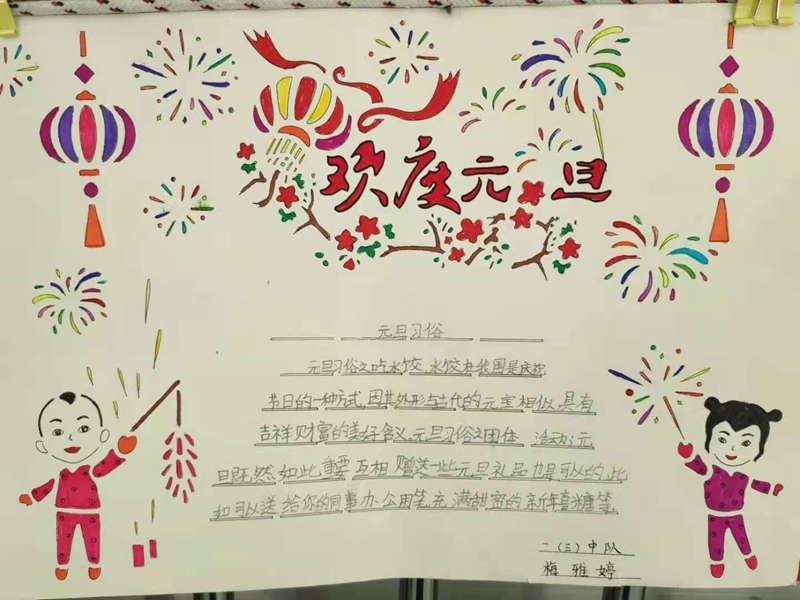 欢庆元旦
元旦习俗
元旦习俗之吃水饺,水饺在我国是庆祝
节日的一种方式,因其外形与古代的元宝相似,具有
吉祥财富的美好含义,元旦习俗之团体活动:元
旦既然如此重要互相赠送一些元旦礼品也是可以的,比
如可以送给你的同事办公用笔,充满甜密的新年喜糖等,
一(三)中队
梅雅婷